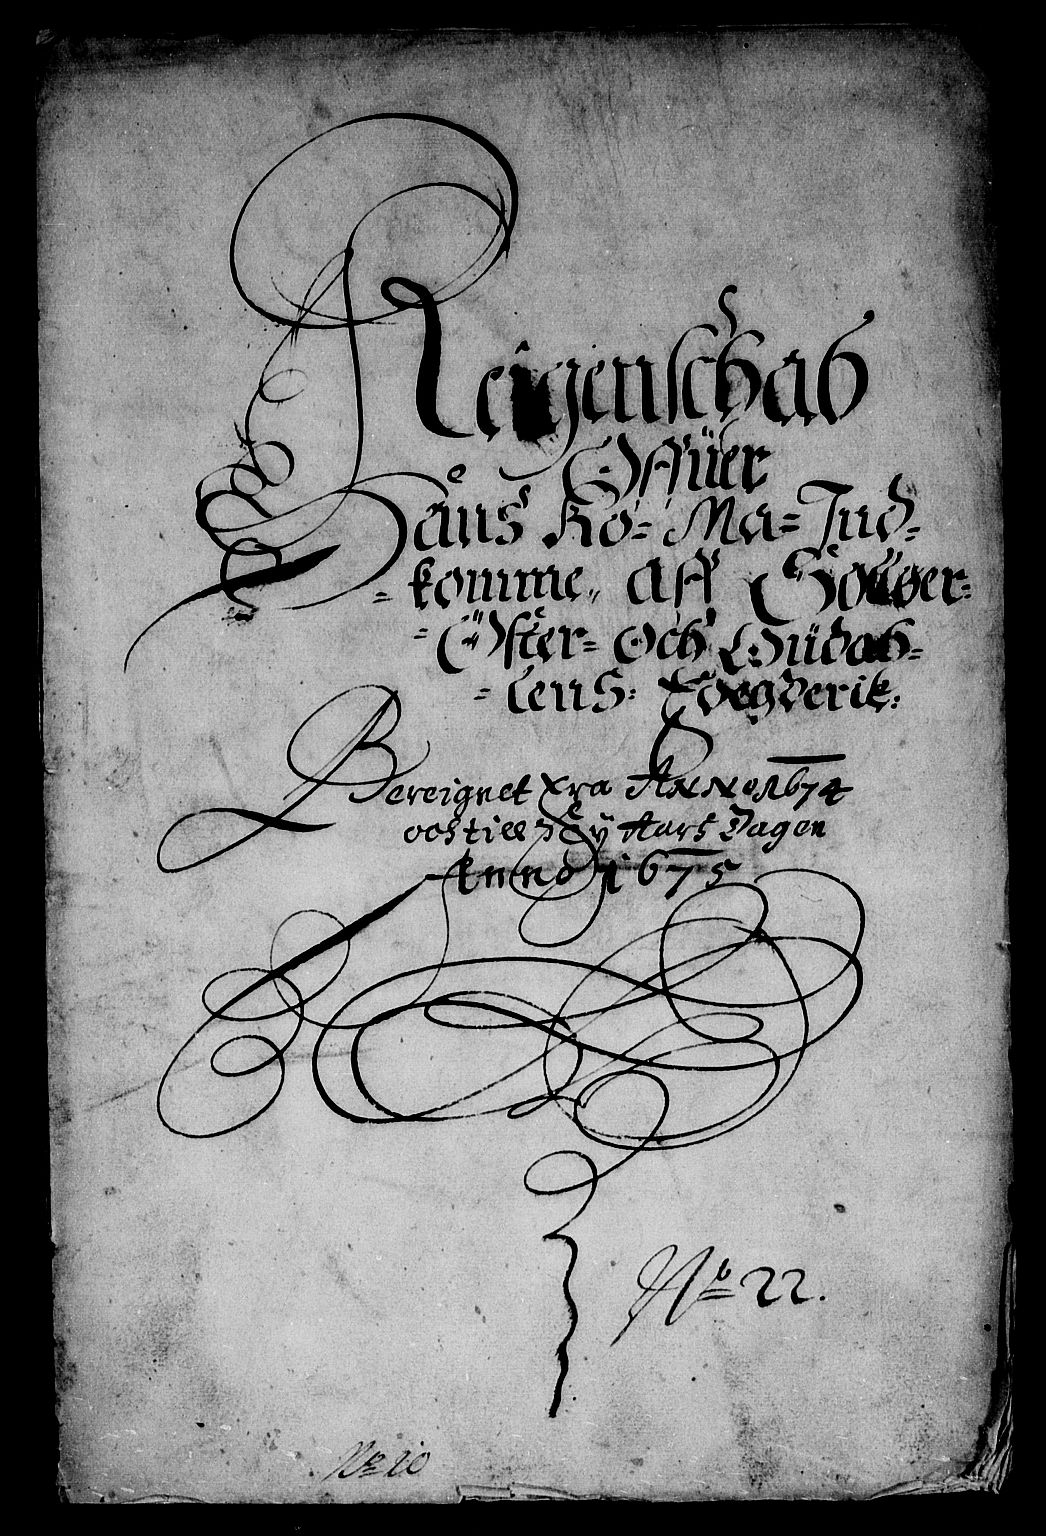 Reigenschab
Offüer
Hans Ko= Ma= Ind=
=komme, aff Solöer=
=Öster= och Gudab=
=lens: Foegderie:
Bereignet Fra Anno 1674
och till Nÿ Aars Dagen
Anno 1675
No 22.
No 20